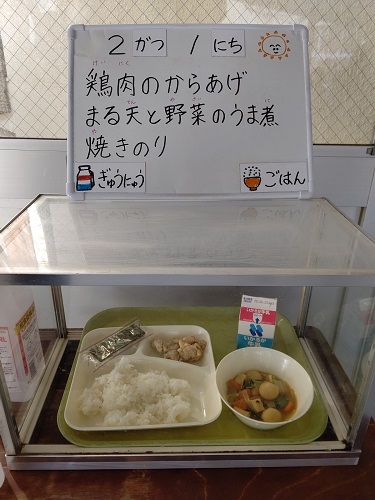 2がつ 1にち
けい にく
鶏肉のからあげ
てん や に
まる天と野菜のうま煮
や
焼きのり
ぎゅうにゅう ごはん